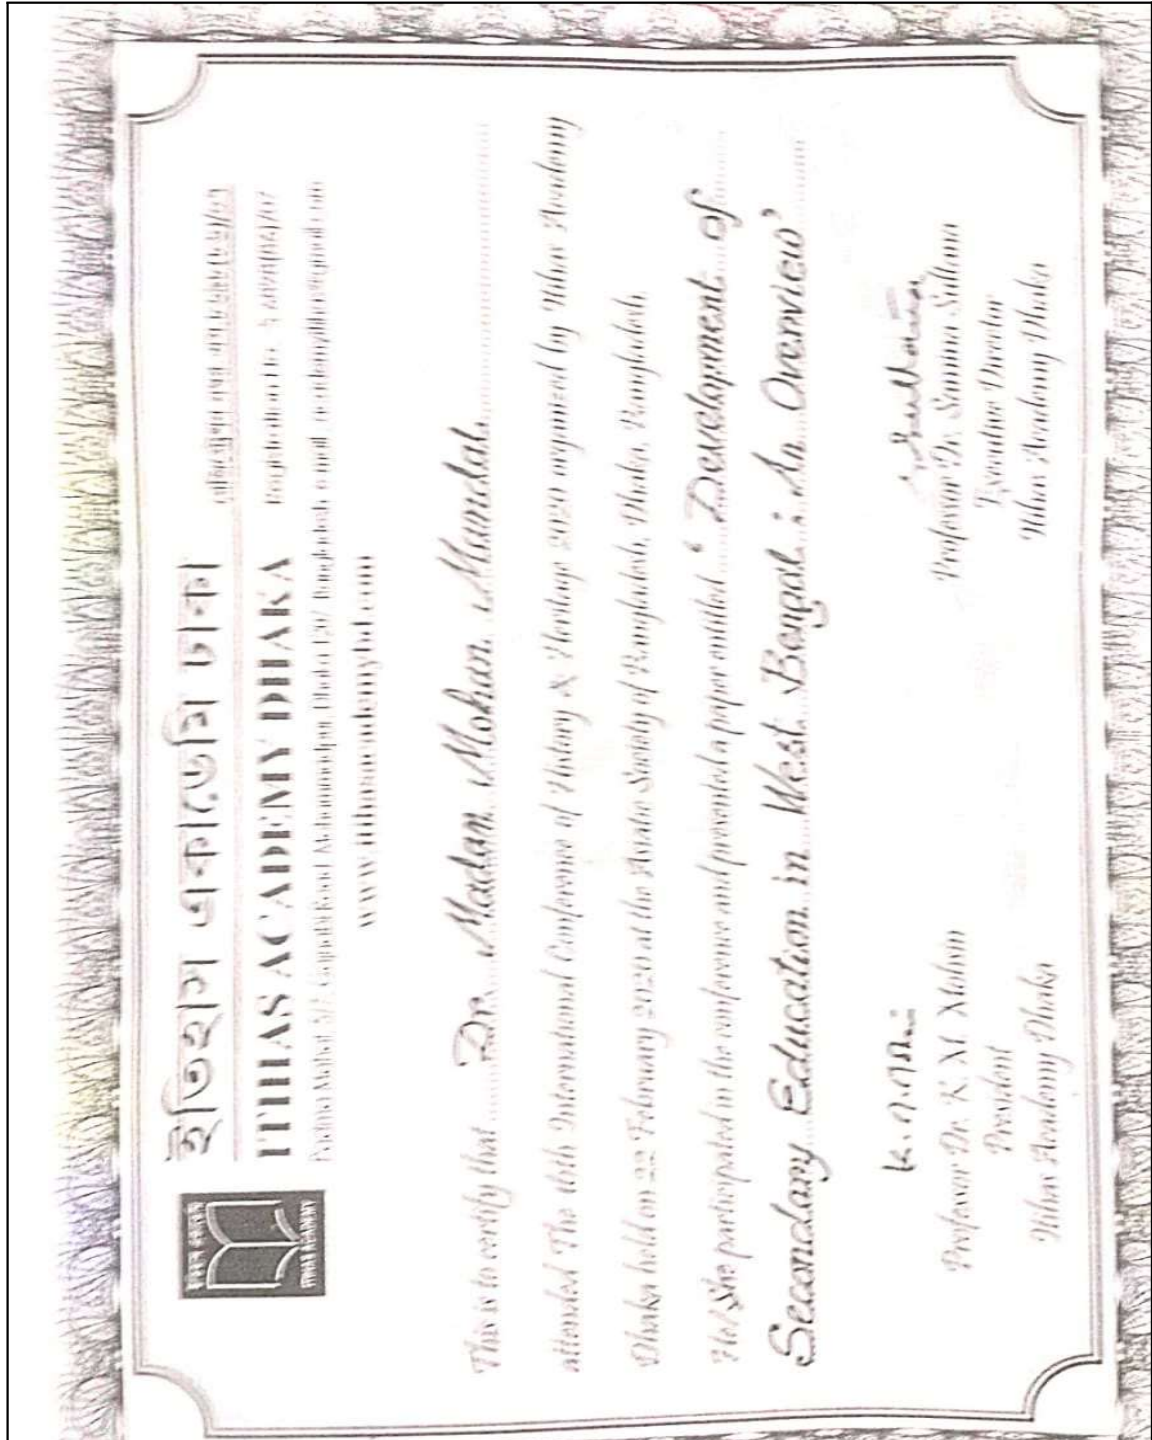 ইতিহাস একাডেমি ঢাকা
ITIHAS ACADEMY DHAKA
Road Mohammadpur, Dhaka 1207 Bangladesh
ITIHAS ACADEMY
This is to certify that Dr. Madan Mohan Mandal
attended The International Conference of History & Heritage 2020 organized by Itihas Academy
Dhaka held on 22 February 2020 at the Asiatic Society of Bangladesh, Dhaka, Bangladesh.
He/She participated in the conference and presented a paper entitled “Development of
Secondary Education in West Bengal : An Overview”
Professor Dr. K M Mohsin
President
Itihas Academy Dhaka
Professor Dr. Sultana
Executive Director
Itihas Academy Dhaka